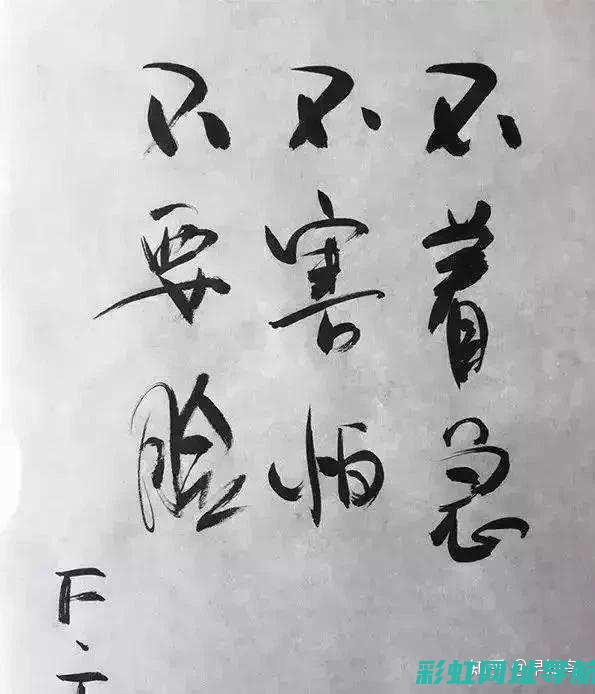 不着急
不害怕
不要脸
F.T
彩虹网址导航